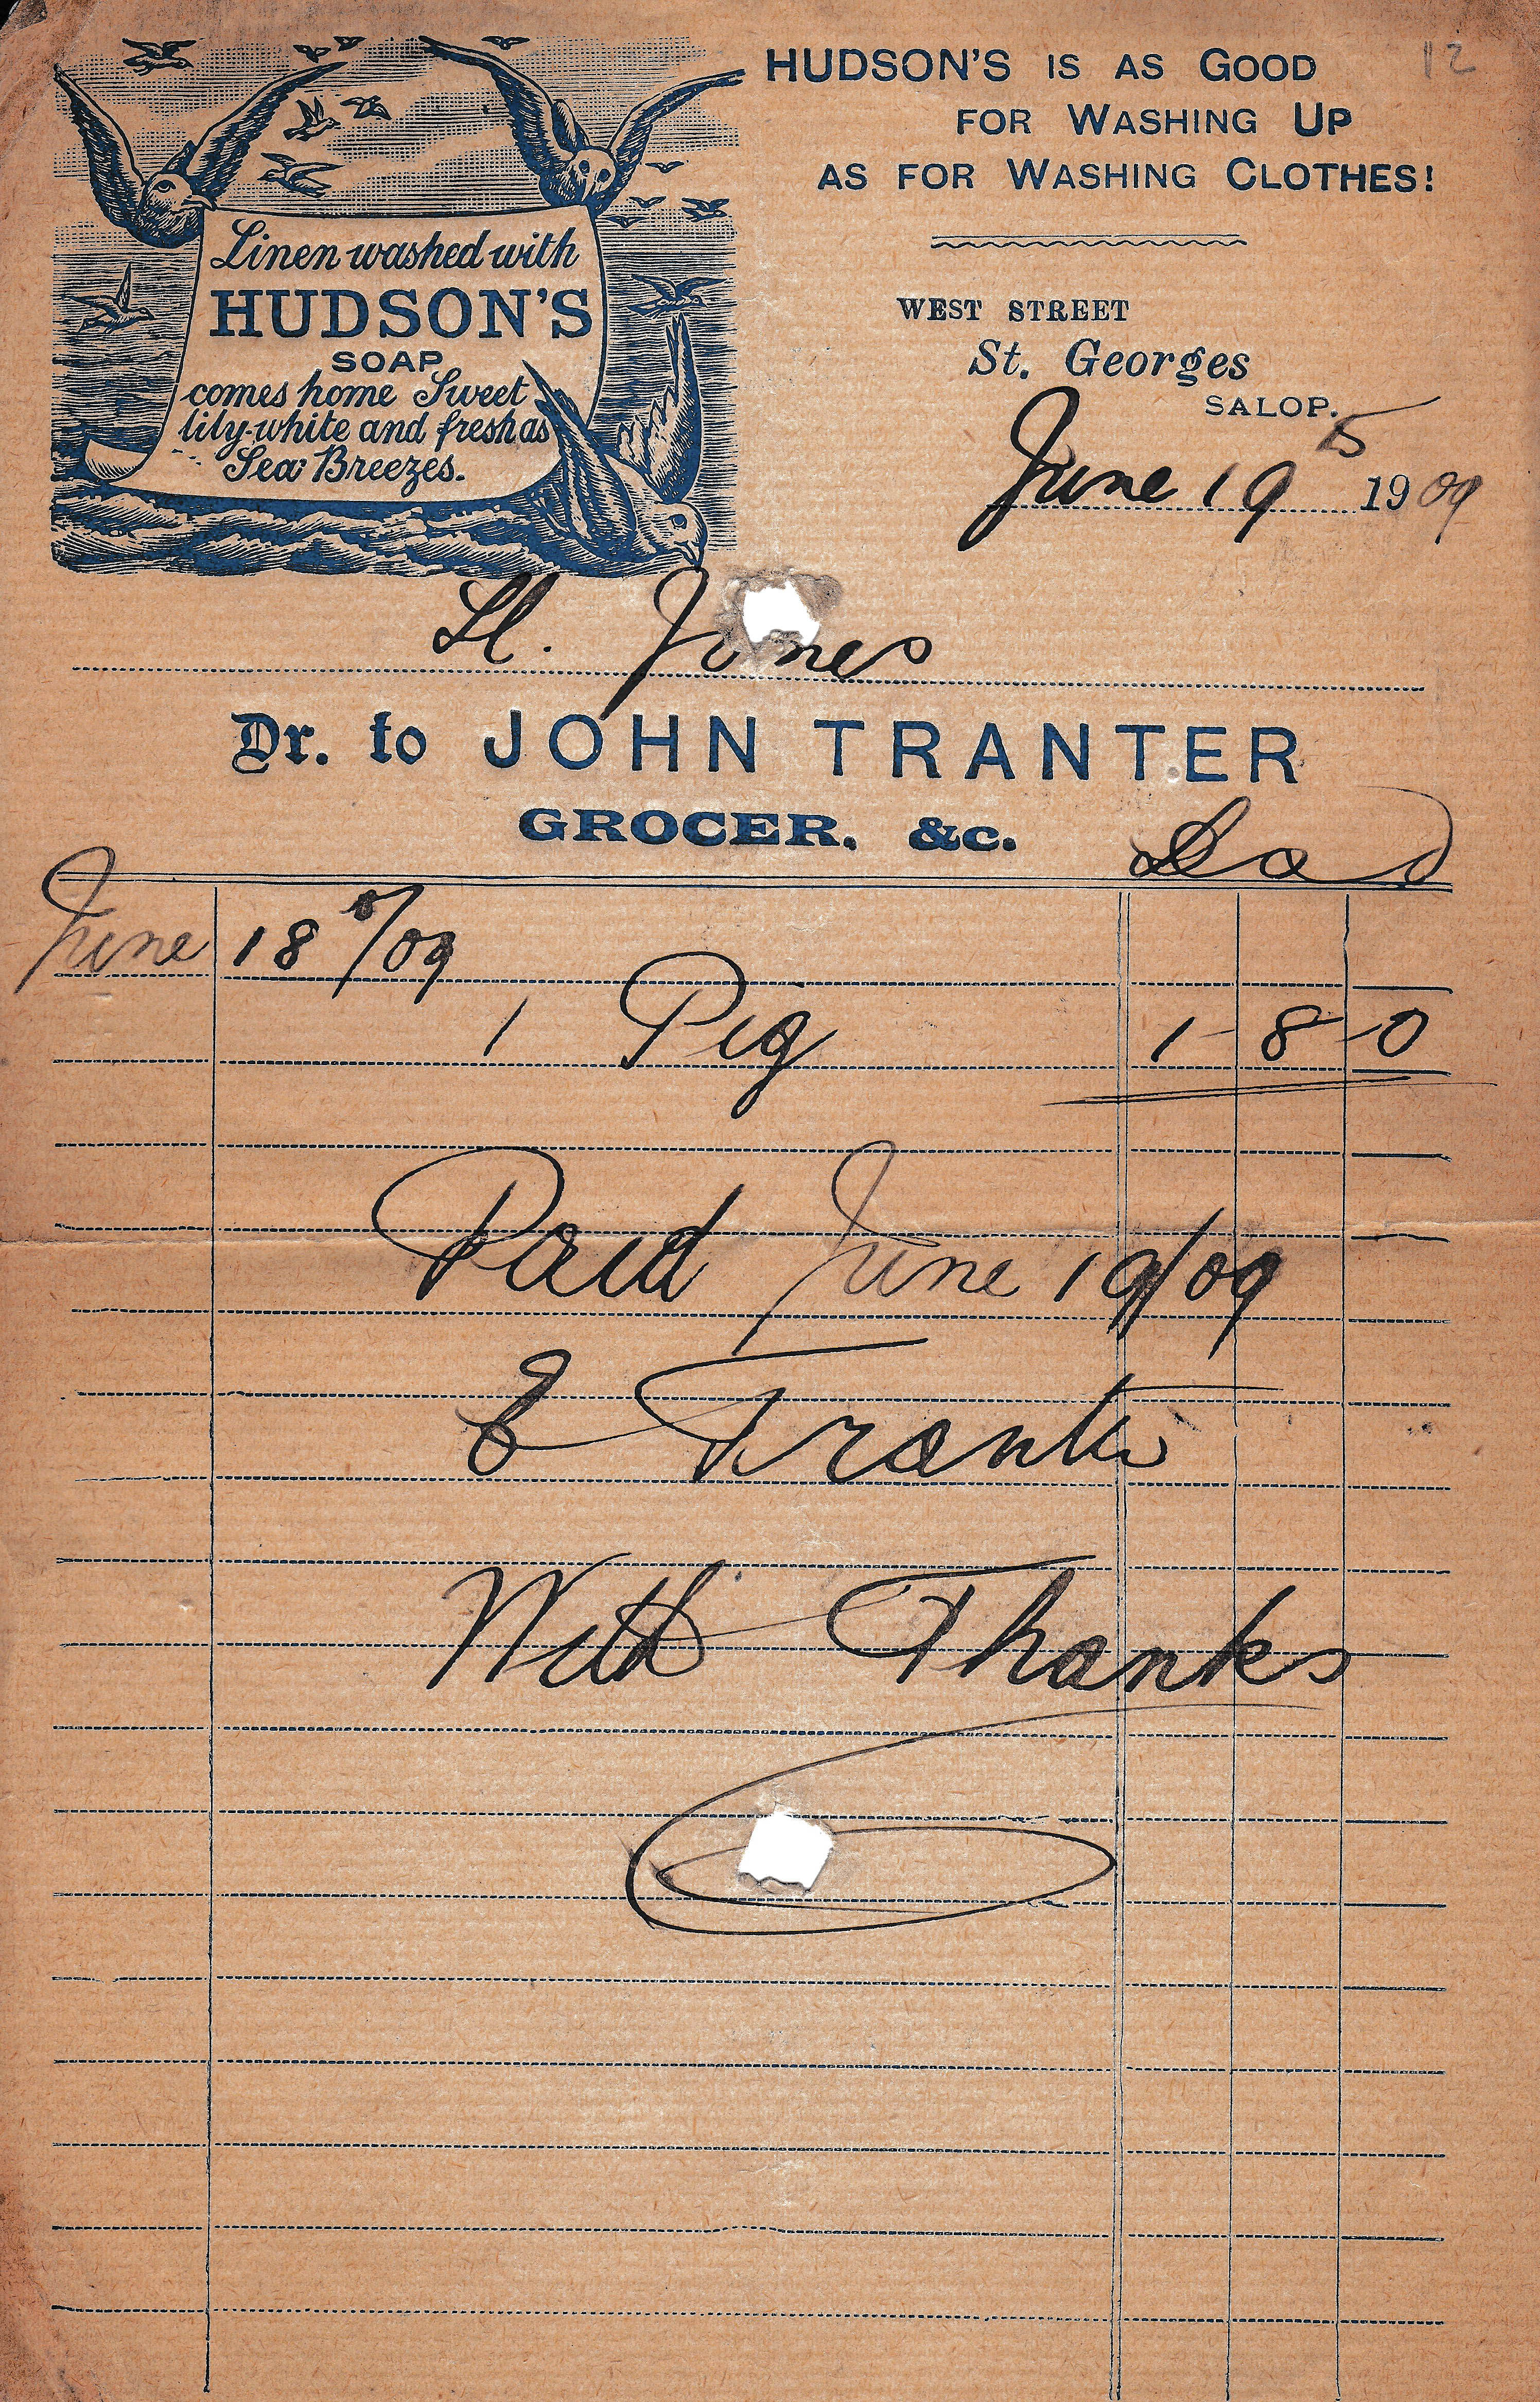 HUDSON'S IS AS GOOD
FOR WASHING UP
AS FOR WASHING CLOTHES!
12
Linen washed with
HUDSON'S
SOAP
comes home Sweet
lily-white and fresh as
Sea Breezes.
WEST STREET
St. Georges
SALOP.
June 19 1909
Jones
Dr. to JOHN TRANTER
GROCER, &c.
£ s d
June 18th/09
1 Pig 1-8-0
Paid June 19/09
E Tranter
With Thanks